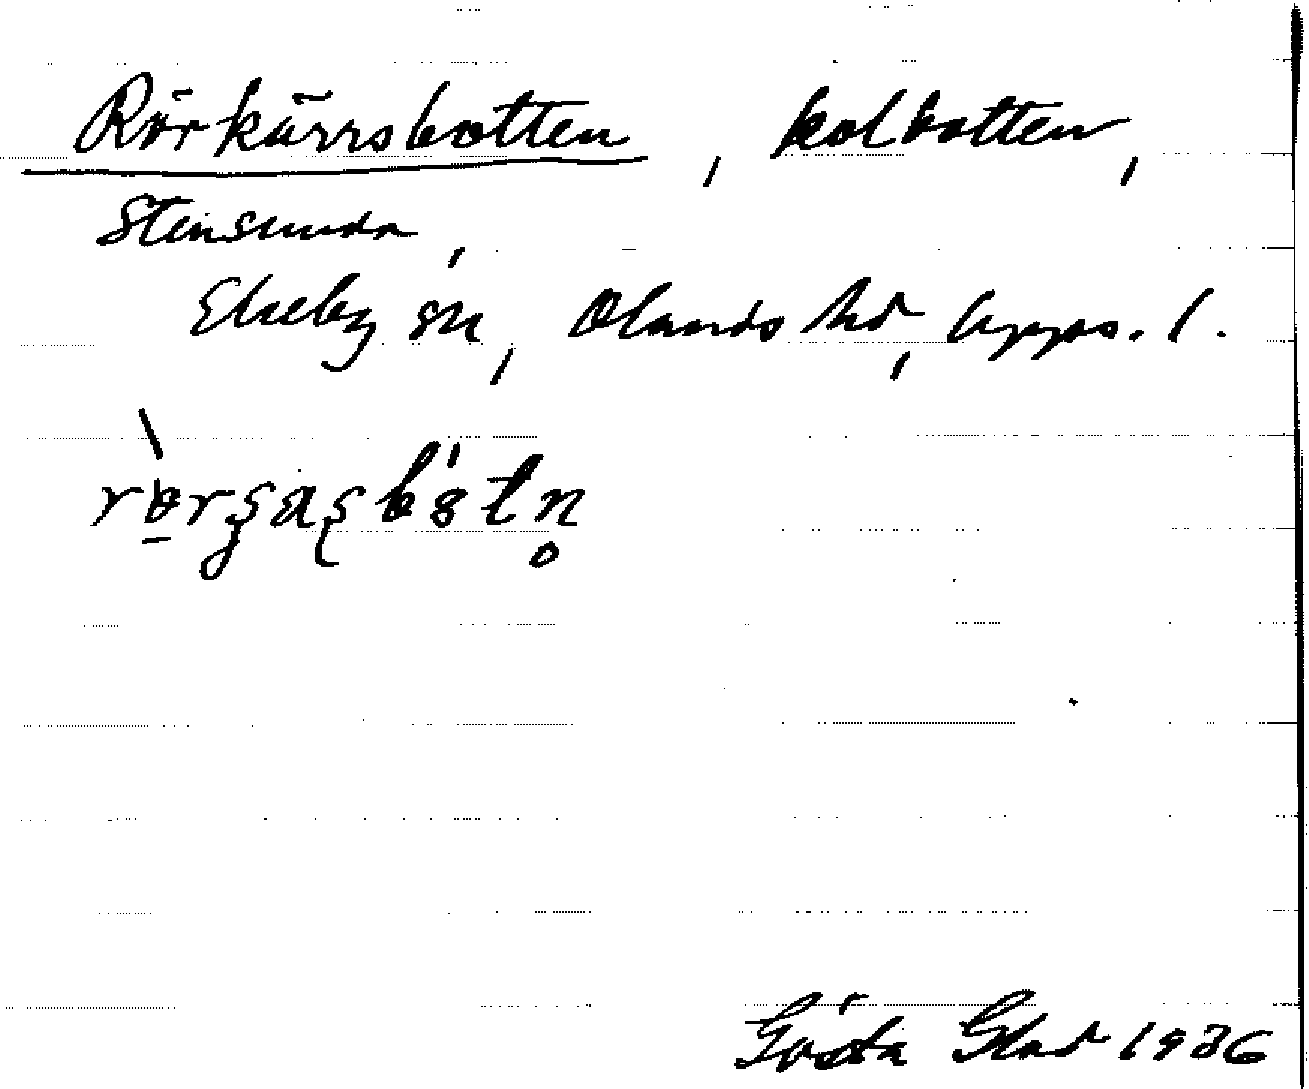 Rörkärrsbotten, kolbotten,
Stensunda,
Ekeby sn, Olands hd, Upps. l.
Gösta Glad 1936